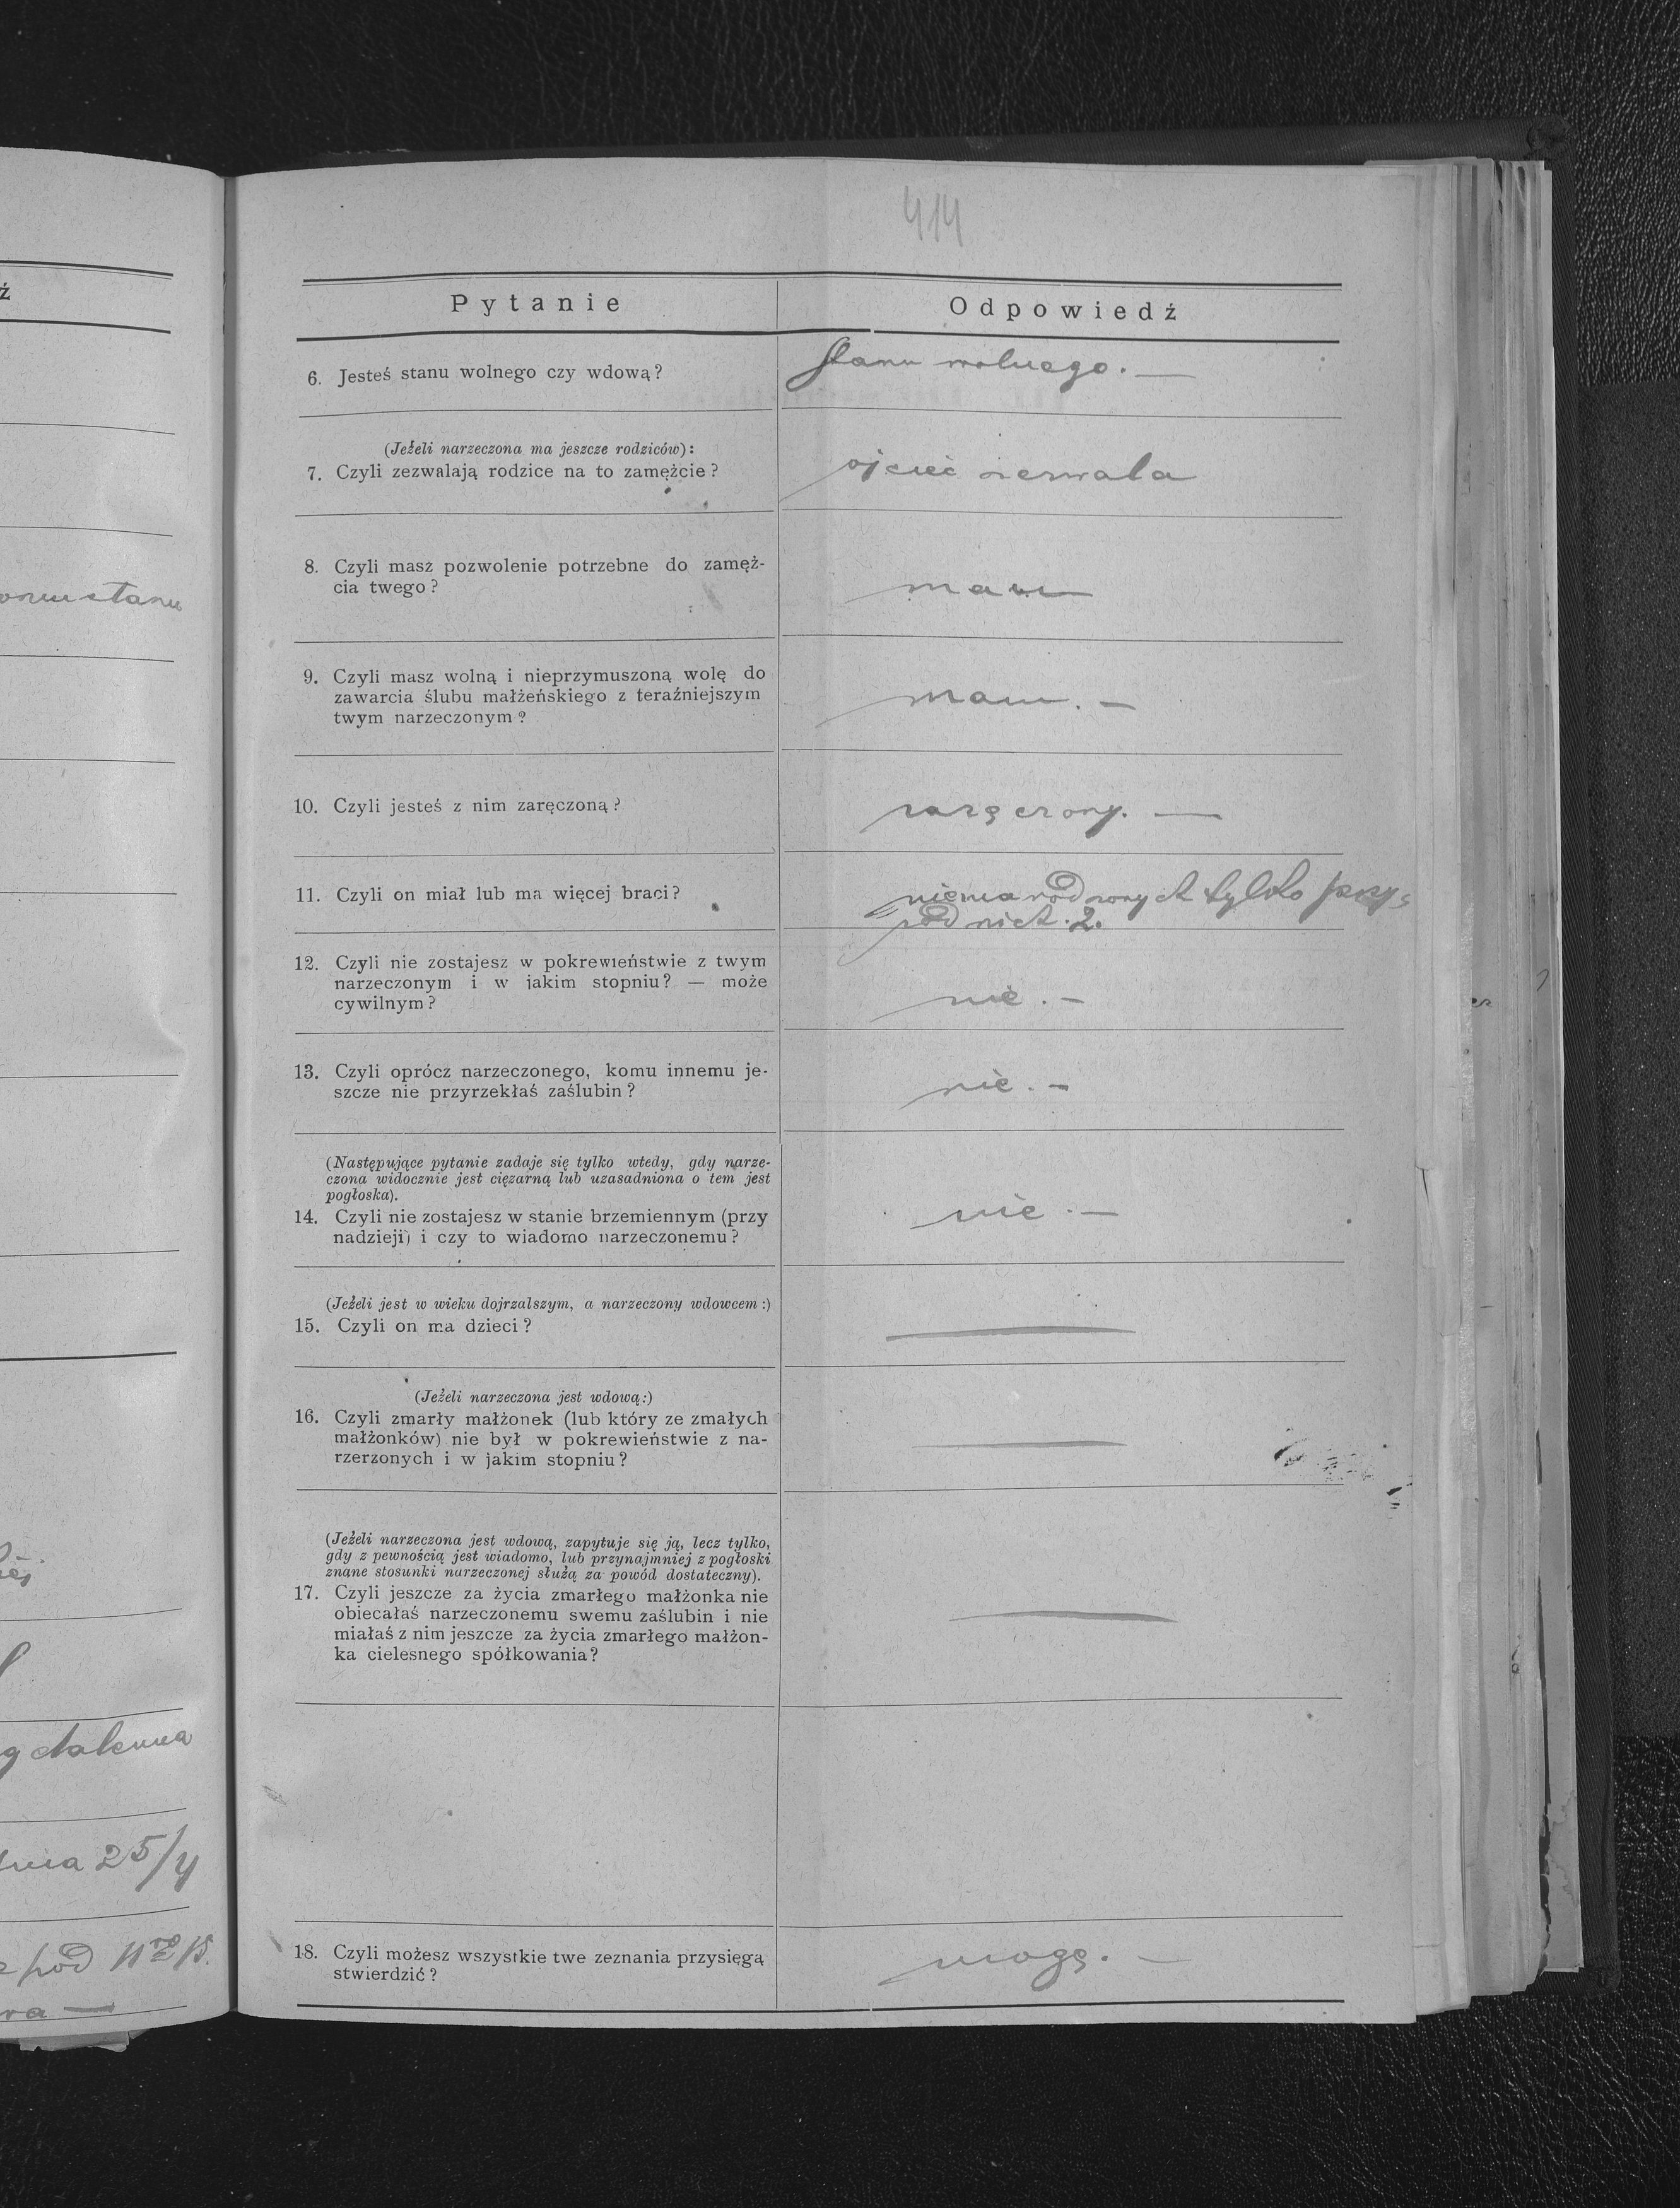 414
Pytanie
Odpowiedź
6. Jesteś stanu wolnego czy wdową?
Stanu wolnego. —
(Jeżeli narzeczona ma jeszcze rodziców):
7. Czyli zezwalają rodzice na to zamężcie?
ojciec zezwala
8. Czyli masz pozwolenie potrzebne do zamęż-
cia twego?
mam
9. Czyli masz wolną i nieprzymuszoną wolę do
zawarcia ślubu małżeńskiego z teraźniejszym
twym narzeczonym?
mam. —
10. Czyli jesteś z nim zaręczoną?
zaręczony. —
11. Czyli on miał lub ma więcej braci?
niema rodzonych tylko przy-
rodnich. 2.
12. Czyli nie zostajesz w pokrewieństwie z twym
narzeczonym i w jakim stopniu? — może
cywilnym?
nie. —
13. Czyli oprócz narzeczonego, komu innemu je-
szcze nie przyrzekłaś zaślubin?
nie. —
(Następujące pytanie zadaje się tylko wtedy, gdy narze-
czona widocznie jest ciężarną lub uzasadniona o tem jest
pogłoska).
14. Czyli nie zostajesz w stanie brzemiennym (przy
nadzieji) i czy to wiadomo narzeczonemu?
nie. —
(Jeżeli jest w wieku dojrzalszym, a narzeczony wdowcem:)
15. Czyli on ma dzieci?
—
(Jeżeli narzeczona jest wdową:)
16. Czyli zmarły małżonek (lub który ze zmałych
małżonków) nie był w pokrewieństwie z na-
rzerzonych i w jakim stopniu?
—
(Jeżeli narzeczona jest wdową, zapytuje się ją, lecz tylko,
gdy z pewnością jest wiadomo, lub przynajmniej z pogłoski
znane stosunki narzeczonej służą za powód dostateczny).
17. Czyli jeszcze za życia zmarłego małżonka nie
obiecałaś narzeczonemu swemu zaślubin i nie
miałaś z nim jeszcze za życia zmarłego małżon-
ka cielesnego spółkowania?
—
18. Czyli możesz wszystkie twe zeznania przysięgą
stwierdzić?
mogę. —